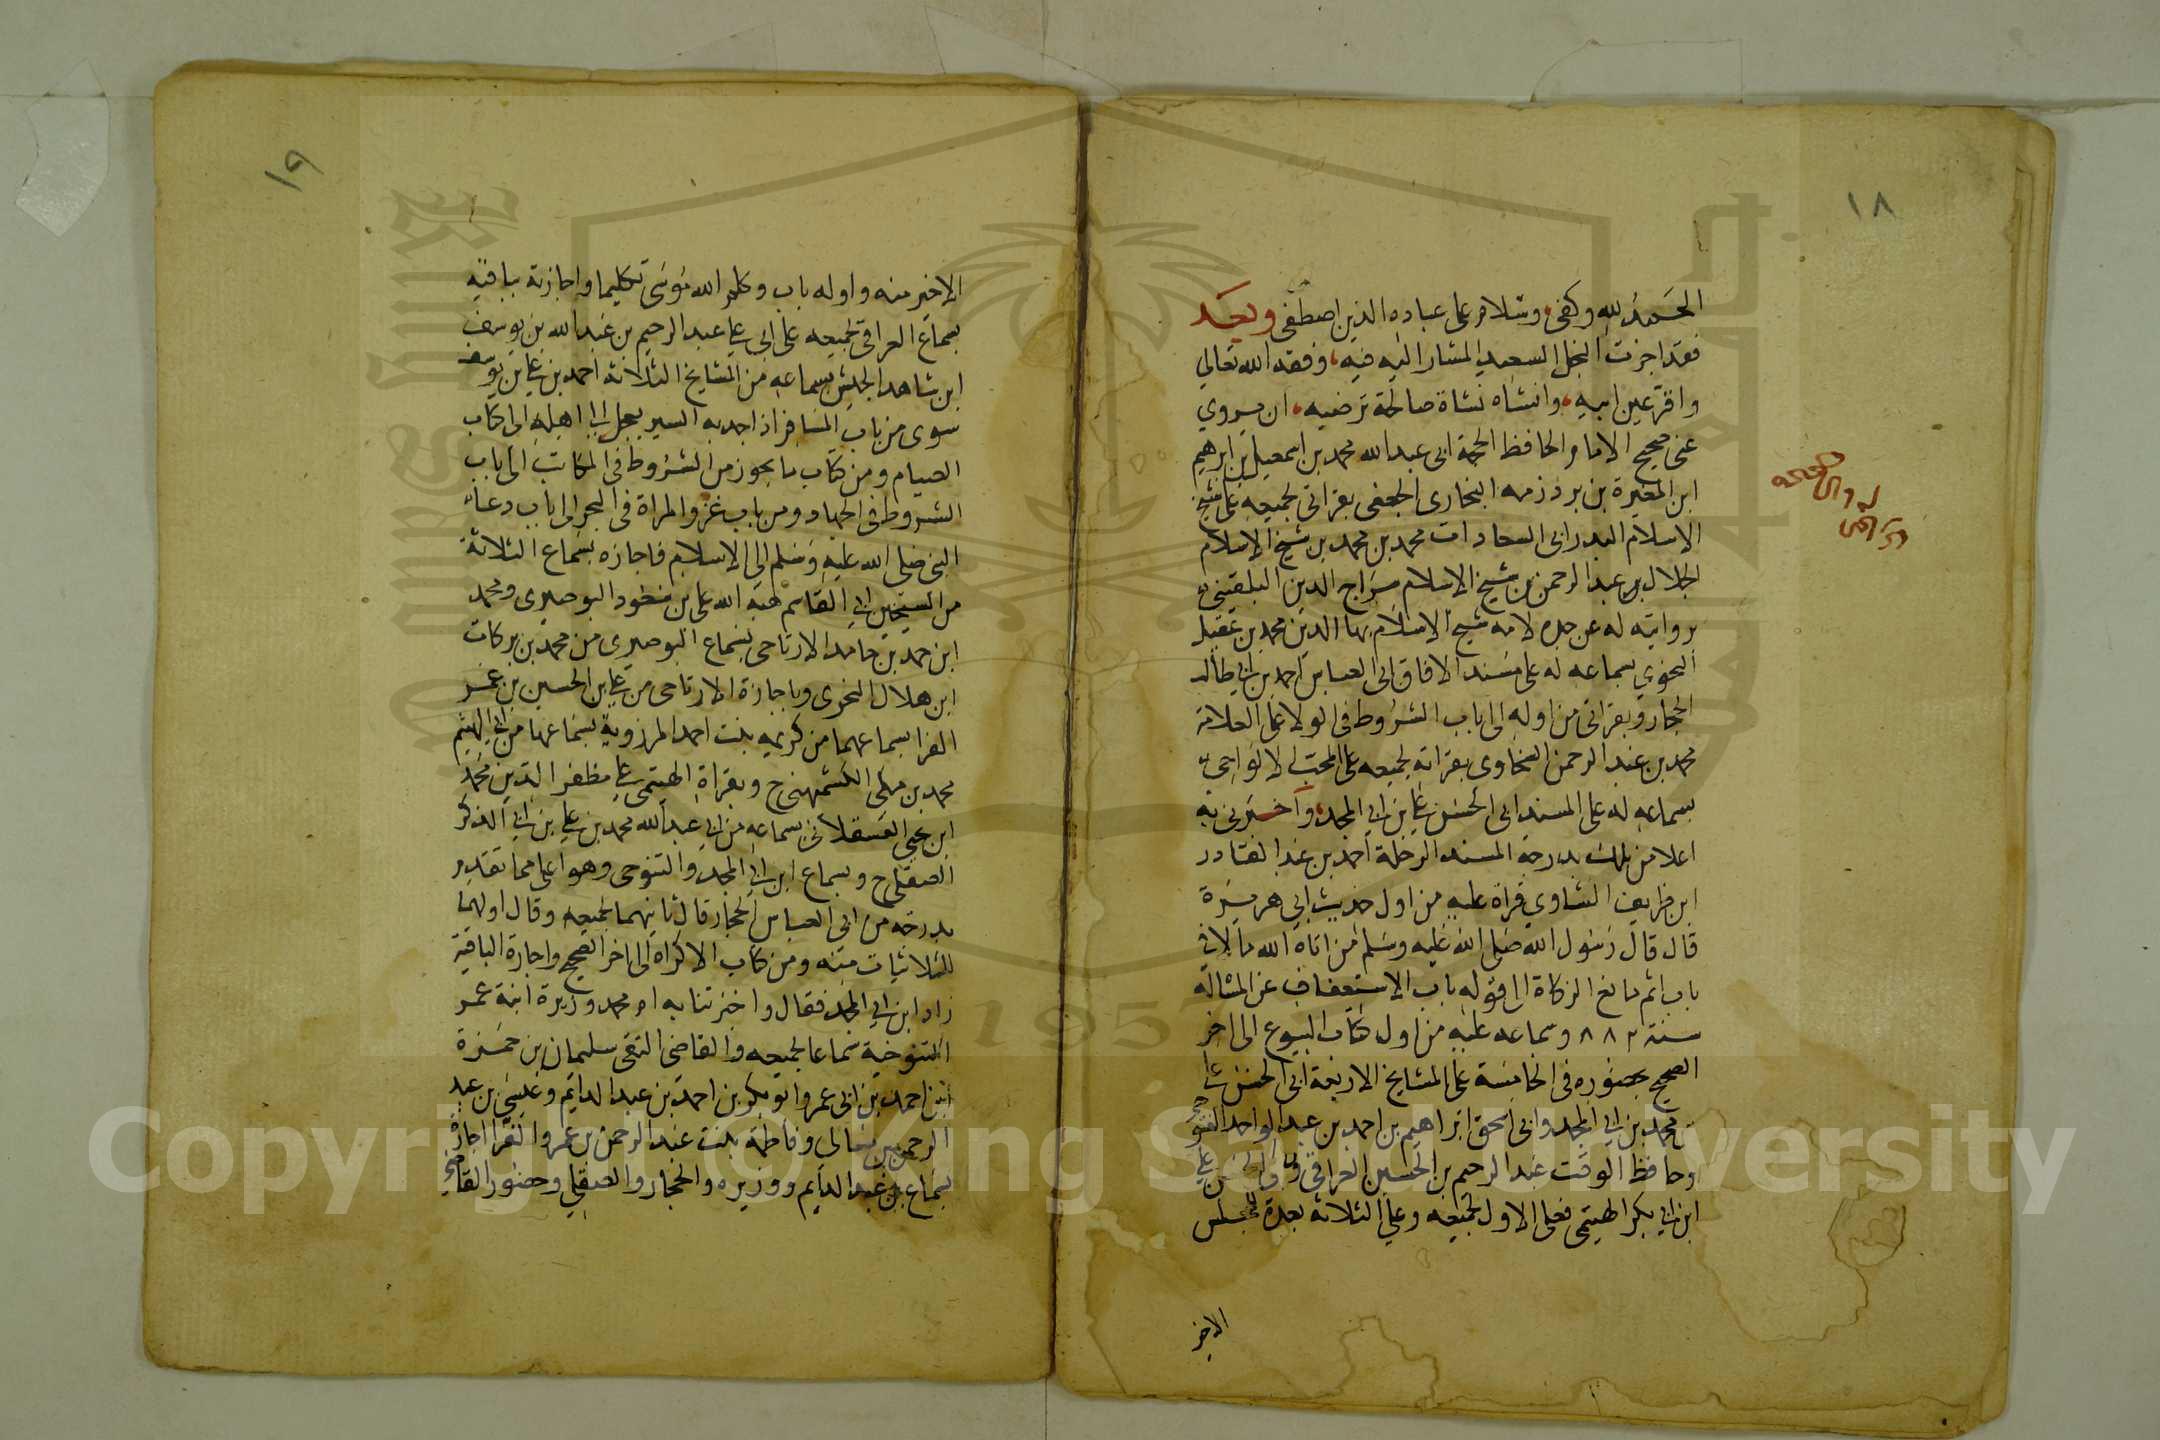 ١٨
الحمد لله وكفى وسلام على عباده الذين اصطفى وبعد
فقد اجزت النجل السعيد المشار اليه فيه، وفقه الله تعالي
واقر عين ابيه، وانشاه نشاة صالحة ترضيه، ان يروي
عني صحيح الامام الحافظ الحجة ابي عبد الله محمد بن اسمعيل بن ابرهيم
ابن المغيرة بن بردزبه البخاري الجعفي بقراتي لجميعه على شيخ
الاسلام البدر ابي السعادات محمد بن محمد بن شيخ الاسلام
الجلال عبد الرحمن بن شيخ الاسلام سراج الدين البلقيني
بروايته له عن جده لامه شيخ الاسلام بها الدين محمد بن عقيل
النحوي بسماعه له على مسند الافاق ابي العباس احمد بن ابي طالب
الحجار وبقراتي من اوله الى باب الشروط في الولا على العلامة
محمد بن عبد الرحمن السخاوي بقراته لجميعه على المحب الالواحي
بسماعه له على المسند ابي الحسن علي بن ابي المجد، واخبرني به
اعلا من ذلك بدرجة المسند الرحلة احمد بن عبد القادر
ابن طريف الشاوي قراة عليه من اول حديث ابي هريرة
قال قال رسول الله صلى الله عليه وسلم من اتاه الله مالا في
باب اثم مانع الزكاة الى قوله باب الاستعفاف عن المسالة
سنة ٨٨٢ وسماعه عليه من اول كتاب البيوع الى اخر
الصحيح بحضوره في الخامسة على المشايخ الاربعة ابي الحسن علي
بن محمد بن ابي المجد وابي اسحق ابراهيم بن احمد بن عبد الواحد التنوخي
وحافظ الوقت عبد الرحيم بن الحسين العراقي وابي الحسن علي
ابن ابي بكر الهيثمي فعلى الاول لجميعه وعلي الثلاثة بعده المجلس
الاخير
١٩
الاخير منه واوله باب وكلم الله موسى تكليما واجازته بباقيه
بسماع العراقي لجميعه على ابي علي عبد الرحيم بن عبد الله بن يوسف
ابن شاهد الجيش بسماعه من المشايخ الثلاثة احمد بن علي بن يوسف
سوى من باب المسافر اذا جد به السير يعجل الى اهله الى كتاب
الصيام ومن كتاب ما يجوز من الشروط في المكاتب الى باب
الشروط في الجهاد ومن باب غزو المراة في البحر الى باب دعاء
النبي صلى الله عليه وسلم الى الاسلام فاجازه بسماع الثلاثة
من الشيخين ابي القاسم هبة الله علي بن مسعود البوصيري ومحمد
ابن حمد بن حامد الارتاحي بسماع البوصيري من محمد بن بركات
ابن هلال النحوي وباجازة الارتاحي من علي بن الحسين بن عمر
الفرا بسماعهما من كريمه بنت احمد المرزوية بسماعها من ابي الهيثم
محمد بن مكي الكشميهني ح وبقراة الهيثمي علي مظفر الدين محمد
ابن يحيى العسقلاني بسماعه من ابي عبد الله محمد بن علي بن ابي الذكر
الصقلي ح وبسماع ابن ابي المجد والتنوخي وهو اعلى مما تقدم
بدرجة من ابي العباس الحجار قال ثانيهما لجميعه وقال اولهما
للثلاثيات منه ومن كتاب الاكراه الى اخر الصحيح واجازة الباقية
زاد ابن ابي المجد فقال واخبرتنا به ام محمد وزيرة ابنة عمر
التنوخية سماعا لجميعه والقاضي التقي سليمان بن حمزة
ابن احمد بن ابي عمر وابو بكر بن احمد بن عبد الدايم وعيسى بن عبد
الرحمن بن معالي وفاطمة بنت عبد الرحمن بن عمرو الفرا اجازة
بسماع ابن عبد الدايم ووزيره والحجار والصقلي وحضور القاضي
Copyright © King Saud University
1957